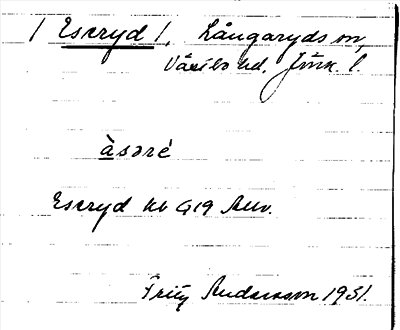 / Esaryd /, Långaryds sn,
Västbo hd. Jönk. l.
àsaré
Esaryd hb G19 Allv.
Fritz Andersson 1931.